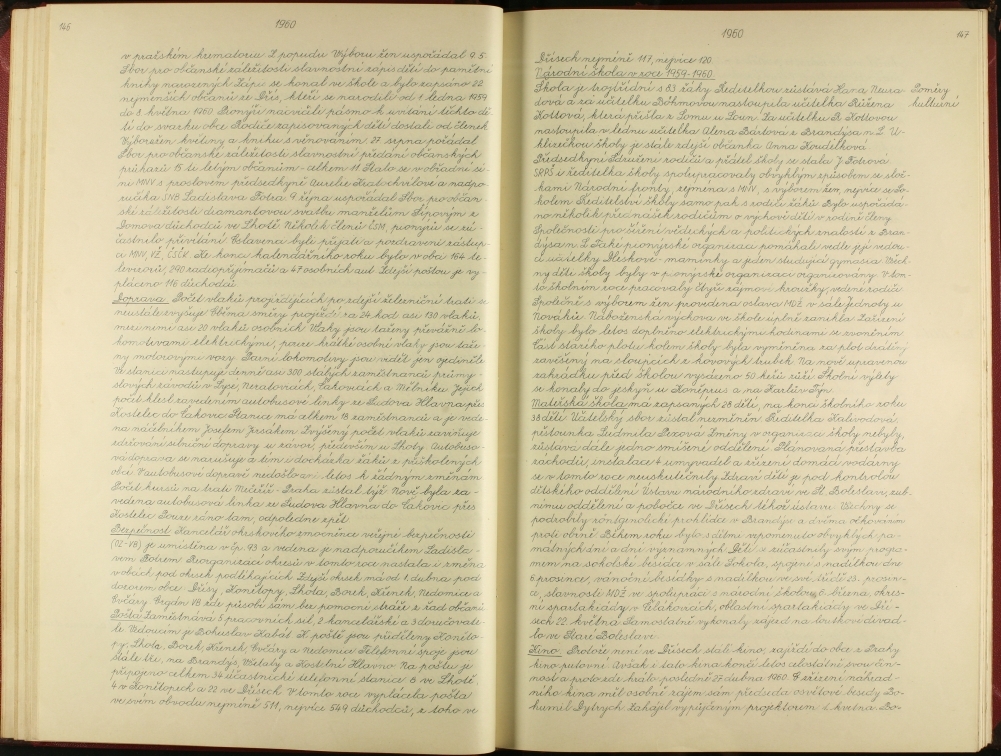 146
1960
v pražském krematoriu. Z popudu Výboru žen uspořádal 9.5.
Sbor pro občanské záležitosti slavnostní zápis dětí do pamětní
knihy narozených. Zápis se konal ve škole a bylo zapsáno 22
nejmenších občánků ze Dřís, kteří se narodili od 1. ledna 1959
do 8. května 1960. Pionýři nacvičili pásmo k uvítání těchto dě-
tí do svazku obce. Rodiče zapisovaných dětí dostali od členek
Výboru žen květiny a knihu s věnováním. 27. srpna pořádal
Sbor pro občanské záležitosti slavnostní předání občanských
průkazů 15 ti letým občanům - celkem 11. Stalo se v obřadní sí-
ni MNV s proslovem předsedkyně Aurelie Krabchvílové a nadpo-
ručíka SNB Ladislava Fotra. 9. října uspořádal Sbor pro občan-
ské záležitosti diamantovou svatbu manželům Šípovým z
Domova důchodců ve Lhotě. Několik členů ČSM, pionýrů se zú-
častnilo přivítání. Oslavenci byli přijati a pozdraveni zástup-
ci MNV, VŽ, ČSČK. Ke konci kalendářního roku bylo v obci 164 te-
levizorů, 290 radiopřijímačů a 47 osobních aut. Zdejší poštou je vy-
pláceno 116 důchodců.
Doprava. Počet vlaků projíždějících po zdejší železniční trati se
neustále zvyšuje. Oběma směry projede za 24 hod. asi 130 vlaků,
mezi nimi asi 20 vlaků osobních. Vlaky jsou taženy převážně lo-
komotivami elektrickými, pouze krátké osobní vlaky jsou taže-
ny motorovými vozy. Parní lokomotivy jsou vidět jen ojediněle.
Ve stanici nastupují denně asi 300 stálých zaměstnanců průmy-
slových závodů v Lysé, Neratovicích, Čakovicích a Mělníku. Jejich
počet klesl zavedením autobusové linky ze Sudova Hlavna přes
Kostelec do Čakovic. Stanice má celkem 18 zaměstnanců a je vede-
na náčelníkem Josefem Jesákem. Zvýšený počet vlaků zaviňuje
zdržování silniční dopravy u závor, především u Lhoty. Autobuso-
vá doprava se narušuje a tím i docházka žáků z přiškolených
obcí. V autobusové dopravě nedošlo ani letos k žádným změnám.
Počet kursů na trati Mečeříž - Praha zůstal týž. Nově byla za-
vedena autobusová linka ze Sudova Hlavna do Čakovic přes
Kostelec. Pouze ráno tam, odpoledne zpět.
Bezpečnost. Kancelář okrskového zmocněnce veřejné bezpečnosti
(OZ-VB) je umístěna v čp. 93 a vedena je nadporučíkem Ladisla-
vem Fotrem. Reorganizací okresů v tomto roce nastala i změna
v obcích pod okrsek podléhajících. Zdejší okrsek má od 1. dubna pod
dozorem obce: Dřísy, Konětopy, Lhota, Borek, Křenek, Nedomice a
Ovčáry. Orgán VB zde působí sám bez pomocné stráže z řad občanů.
Pošta. Zaměstnává 5 pracovních sil, 2 kancelářské a 3 doručovate-
le. Vedoucím je Bohuslav Kabát. K poště jsou přiděleny Koněto-
py, Lhota, Borek, Křenek, Ovčáry a Nedomice. Telefonní spoje jsou
stále tři, na Brandýs, Všetaty a Kostelní Hlavno. Na poštu je
připojeno celkem 34 účastnické telefonní stanice: 8 ve Lhotě,
4 v Konětopech a 22 ve Dřísech. V tomto roce vyplácela pošta
ve svém obvodu nejméně 511, nejvíce 549 důchodců, z toho ve
1960
147
Dřísech nejméně 117, nejvíce 120.
Národní škola v roce 1959-1960.
Poměry
kulturní
Škola je trojtřídní s 83 žáky. Ředitelkou zůstává Hana Neura-
dová a za učitelku Böhmovou nastoupila učitelka Růžena
Kottová, která přišla z Lomu u Loun. Za učitelku R. Kottovou
nastoupila v lednu učitelka Alena Bártová z Brandýsa n. L. U-
klízečkou školy je stále zdejší občanka Anna Koudelková.
Předsedkyní Sdružení rodičů a přátel školy se stala J. Fotrová.
SRPŠ a ředitelka školy spolupracovaly obvyklým způsobem se slož-
kami Národní fronty, zejména s MNV, s výborem žen, nejvíce se So-
kolem. Ředitelství školy samo pak s rodiči žáků. Bylo uspořádá-
no několik přednášek rodičům o výchově dětí v rodině členy
Společnosti pro šíření vědeckých a politických znalostí z Bran-
dýsa n. L. Také pionýrské organizaci pomáhali vedle její vedou-
cí učitelky Pleskové - maminky a jeden studující gymnasia. Všech-
ny děti školy byly v pionýrské organizaci organizovány. V tom-
to školním roce pracovaly čtyři zájmové kroužky, vedené rodiči.
Společně s výborem žen provedena oslava MDŽ v sále Jednoty u
Nováků. Náboženská výchova ve škole úplně zanikla. Zařízení
školy bylo letos doplněno elektrickými hodinami se zvoněním.
Část starého plotu kolem školy byla vyměněna za plot drátěný
zavěšený na sloupcích z kovových trubek. Na nově upravenou
zahrádku před školou vysázeno 50 keřů růží. Školní výlety
se konaly do jeskyň u Koněprus a na Karlův Týn.
Mateřská škola má zapsaných 28 dětí, na konci školního roku
38 dětí. Učitelský sbor zůstal nezměněn. Ředitelka Kalivodová,
pěstounka Ludmila Pexová. Změny v organizaci školy nebyly,
zůstává dále jedno smíšené oddělení. Plánovaná přístavba
záchodů, instalace 4 umyvadel a zřízení domácí vodárny
se v tomto roce neuskutečnily. Zdraví dětí je pod kontrolou
dětského oddělení Ústavu národního zdraví ve St. Boleslavi, zub-
nímu oddělení a pobočce ve Dřísech téhož ústavu. Všichni se
podrobily röntgenologické prohlídce v Brandýse a dvěma očkováním
proti obrně. Během roku bylo s dětmi vzpomenuto obvyklých pa-
mátných dní a dní významných. Děti zúčastnily svým progra-
mem na sokolské besídce v sále Sokola, spojené s nadílkou dne
6. prosince, vánoční besídky s nadílkou ve své třídě 23. prosin-
ce, slavnosti MDŽ ve spolupráci s národní školou 6. března, okres-
ní spartakiády v Čelákovicích, oblastní spartakiády ve Dří-
sech 22. května. Samostatně vykonaly zájezd na loutkové divad-
lo ve Staré Boleslavi.
Kino. Protože není ve Dřísech stálé kino, zajíždí do obce z Prahy
kino putovní. Avšak i toto kino končí letos celostátní svou čin-
nost a proto zde hrálo posledně 27. dubna 1960. O zřízení náhrad-
ního kina měl osobně zájem sám předseda osvětové besedy Bo-
humil Dytrych. Zahájil vypůjčeným projektorem 1. května. Bo-